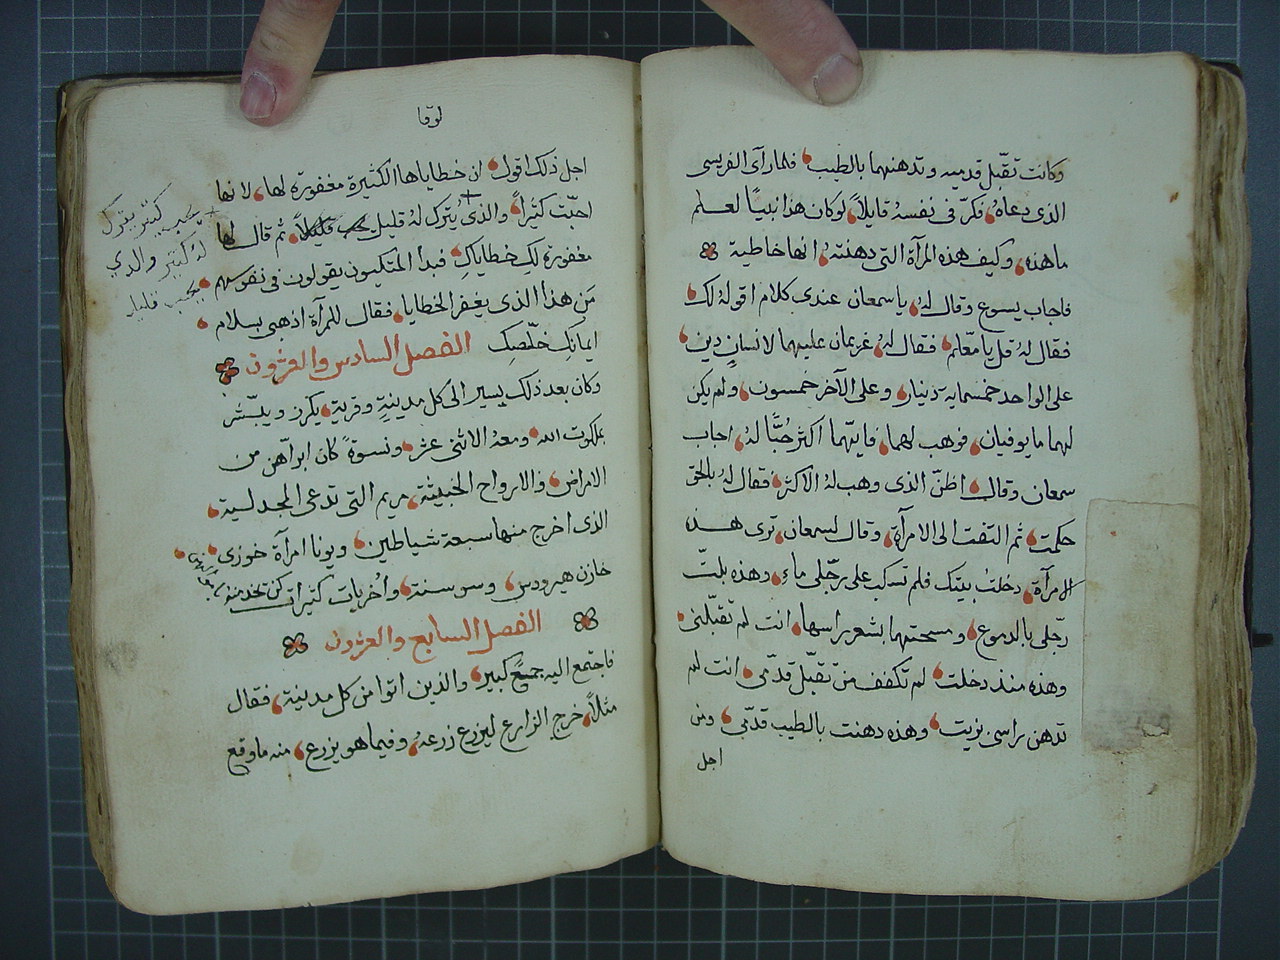 وكانت تقبّل قدميه وتدهنهما بالطيب فلما رآى الفريسى
الذى دعاه فكرّ فى نفسه قايلاً لوكان هذا نبيًا لعلم
ماهذه وكيف هذه المرآة التى دهنته انها خاطية
فاجاب يسوع وقال له ياسمعان عندى كلام اقوله لك
فقال له قل يا معّلم فقال له غريمان عليهما لانسانٍ دين
على الواحد خمسمايه دينار وعلى الآخر خمسون ولم يكن
لهما ما يوفيان فوهب لهما فايّهما اكثر حُبًّا له اجاب
سمعان وقال اظنّ الذى وهب له الاكثر فقال له بالحق
حكمت ثم التفت الى الامرآة وقال لسمعان ترى هذه
الامرآة دخلت بيتك فلم تسكب على رجّلى ماء وهذه بلتّ
رجّلى بالدموع ومسحتهما بشعر راسها انت لم تقبّلنى
وهذه منذ دخلت لم تكفف من تقبّل قدّمى انت لم
تدهن راسى بزيت وهذه دهنت بالطيب قدّمى ومن
اجل
لوقا
اجل ذلك اقول ان خطاياها الكثيرة مغفورة لها لانها
احبّت كثيراً والذى يُترك له قليل يحب قليلاً ثم قال لها
مغفورة لكِ خطاياكِ فبدأ المتكيون يقولون فى نفوسهم
مَن هذا الذى يغفر الخطايا فقال للمرآة اذهبى بسلام
ايمانكِ خلّصكِ الفصل السادس والعشرون
وكان بعد ذلك يسير الى كل مدينةٍ وقرية يكرز ويبّشر
بملكوت الله ومعه الاثنى عشر ونسوةً كان ابراهن من
الامراض والارواح الخبيثة مريم التى تدعى المجدلية
الذى اخرج منها سبعة شياطين ويونا امرآة خوزى
خازن هيرودس وسوسنة وأخريات كثيرات كن تخدمنه
الفصل السابع والعشرون
فاجتمع اليه جمعٌ كبير والذين اتوا من كل مدينة فقال
مثلاً خرج الزارع ليزرع زرعه وفيما هو يزرع منه ما وقع
يحب كثير يترك
له كثير والذي
يحب قليل